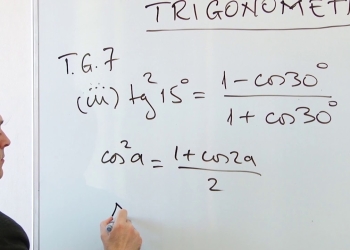 TRIGONOMET
T.G.7
(iii) tg²15° = 1-cos30° / 1+cos30°
cos²a = 1+cos2a / 2